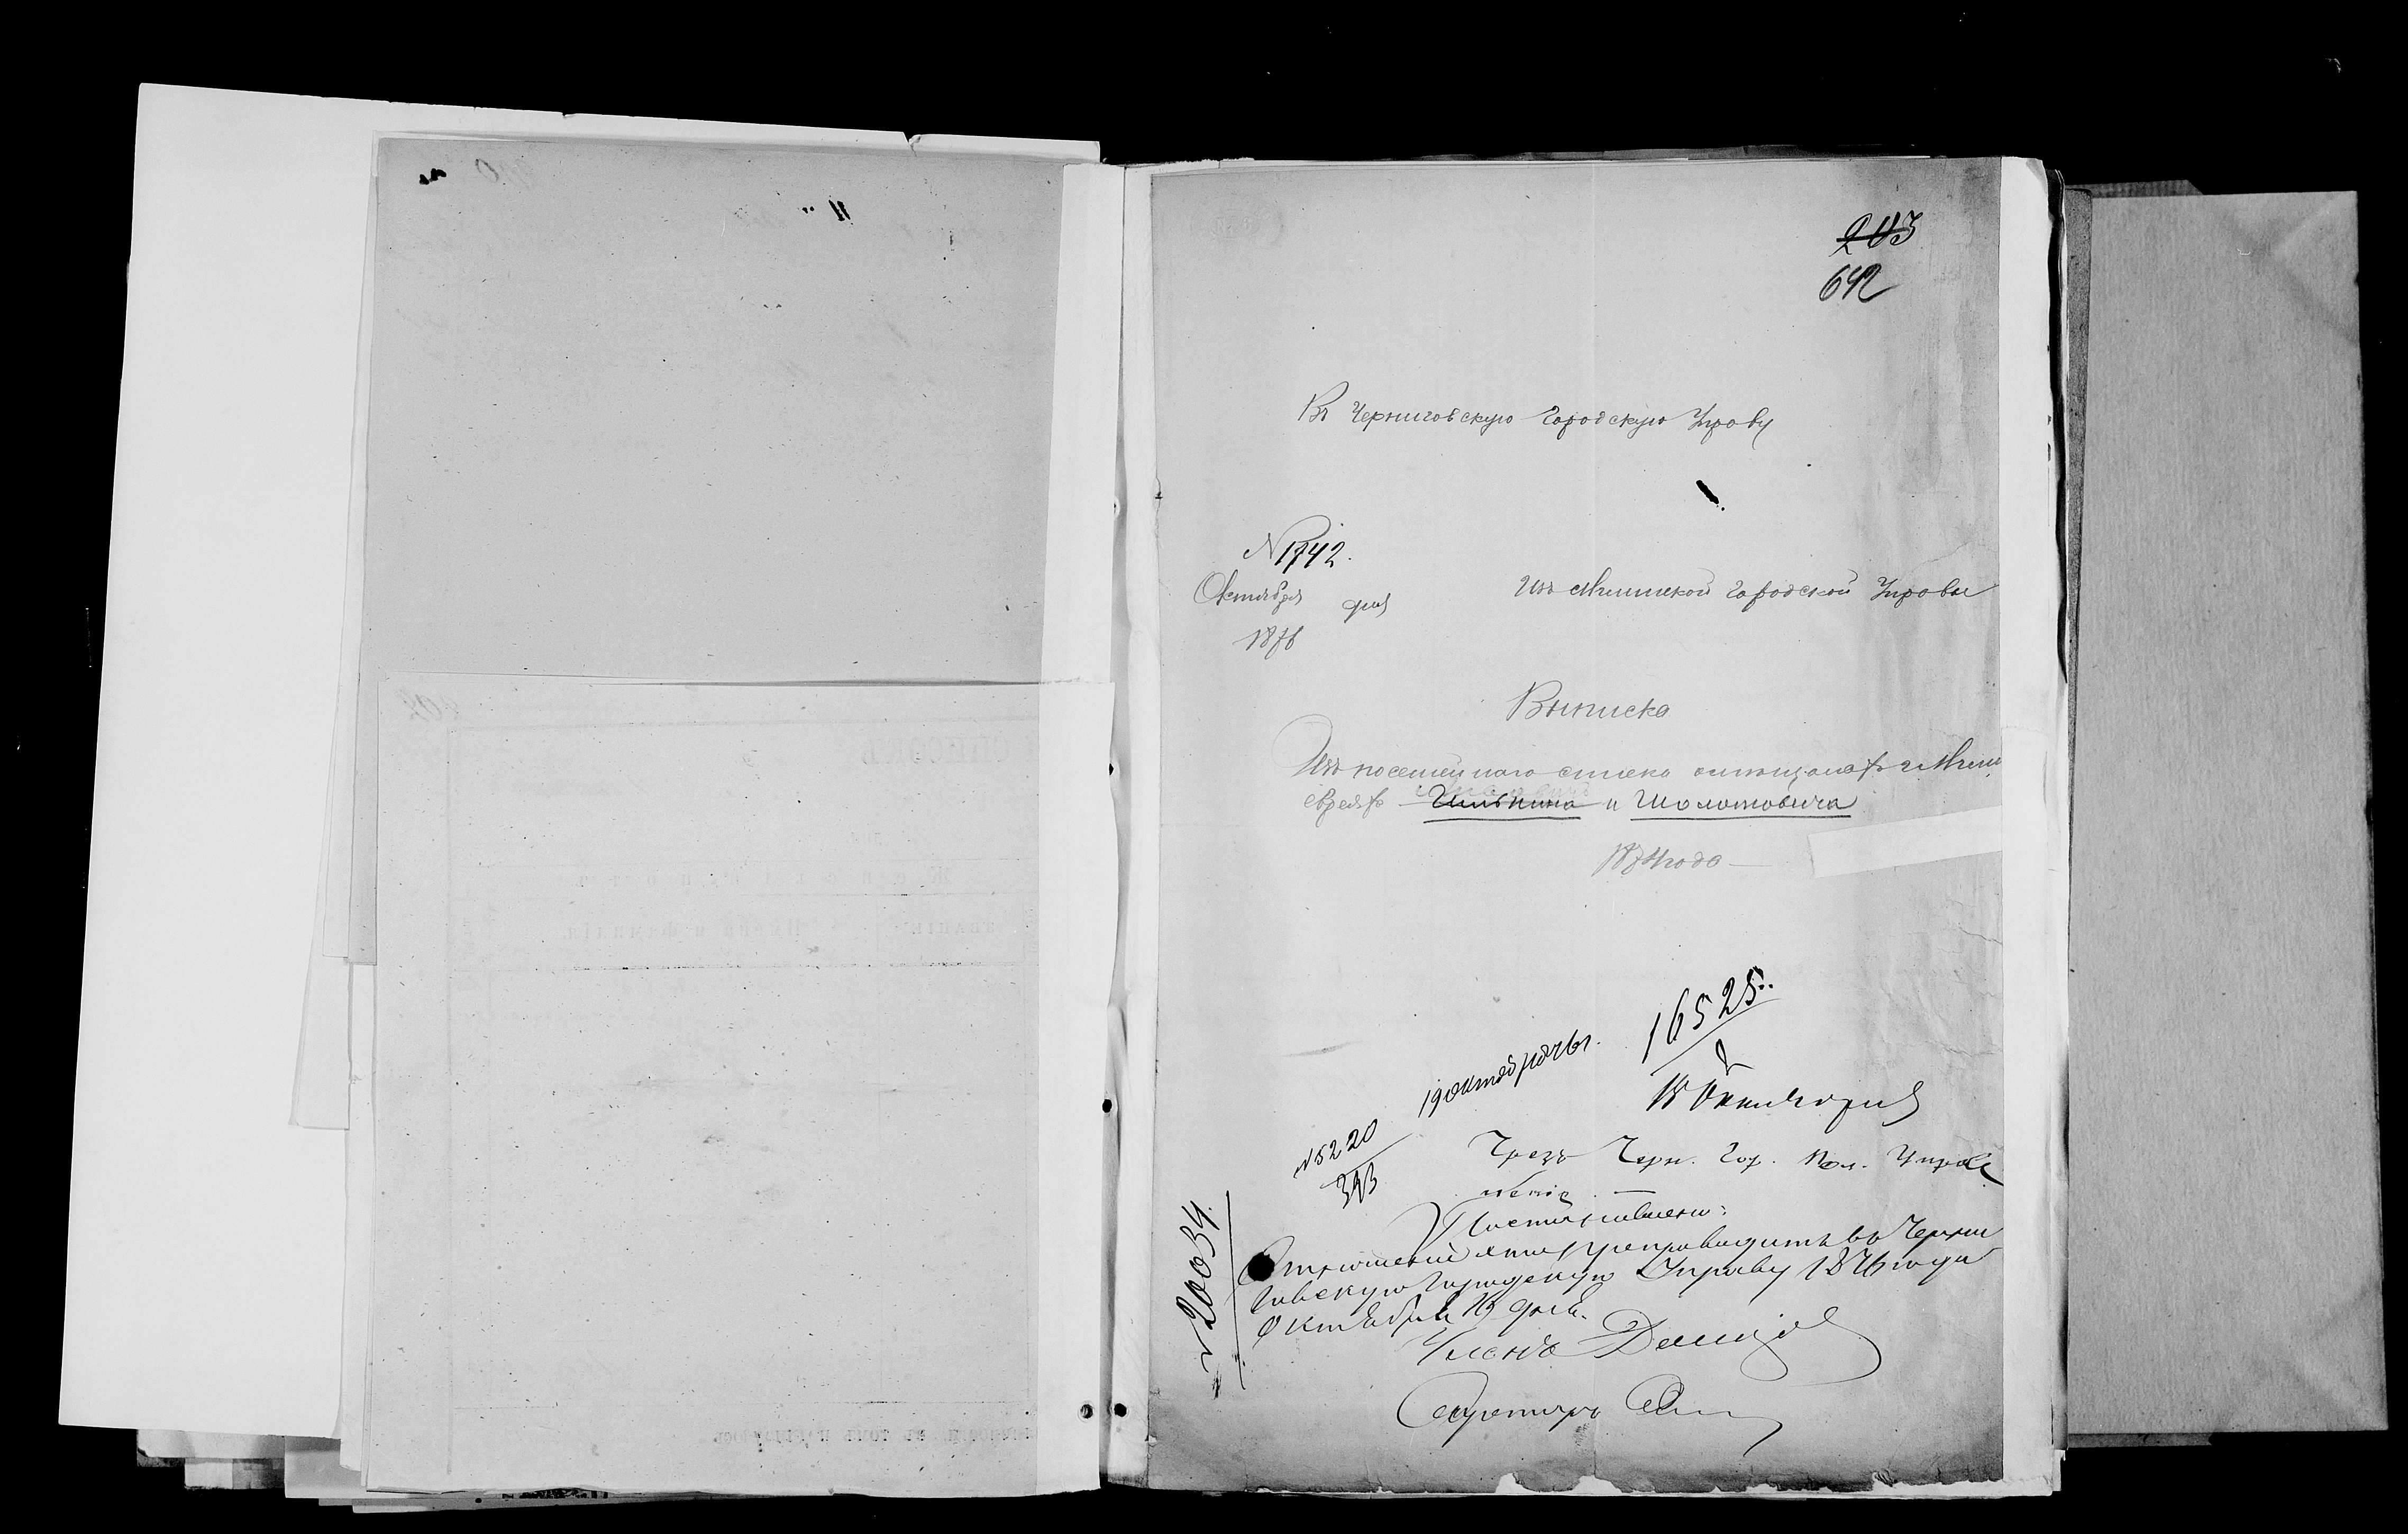 203
642
Въ Черниговскую Городскую Управу
N 1742.
Октября дня
1876
Изъ Мглинской Городской Управы
Выписка
Изъ посемейнаго списка мѣщанъ г. Мглин
евреевъ Гилькина и Шоломовича
1874 года
16525
19 Октября 76 г.
18 Октября
N 5220
Чрезъ Черн. Гор. Пол. Управ
леніе
Постановлено:
Отношеніе это препроводить въ Черни
говскую Городскую Управу 1876 года
Октября 18 дня.
N 20034.
Членъ
Секретарь
СПИСОКЪ
званіе. Имена и фамиліи